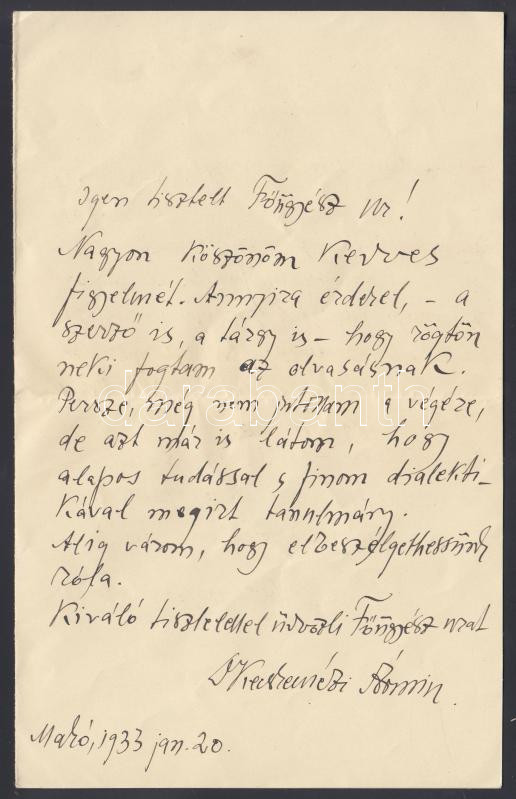 Igen tisztelt Főügyész Ur!
Nagyon köszönöm kedves
figyelmét. Annyira érdekel, – a
szerző is, a tárgy is – hogy rögtön
neki fogtam az olvasásnak.
darabanth
Persze, még nem jutottam a végére,
de azt már is látom, hogy
alapos tudással s finom dialekti-
kával megirt tanulmány.
Alig várom, hogy elbeszélgethessünk
róla.
Kiváló tisztelettel üdvözli Főügyész urat
Dr Kecskeméti Ármin
Makó, 1933 jan. 20.